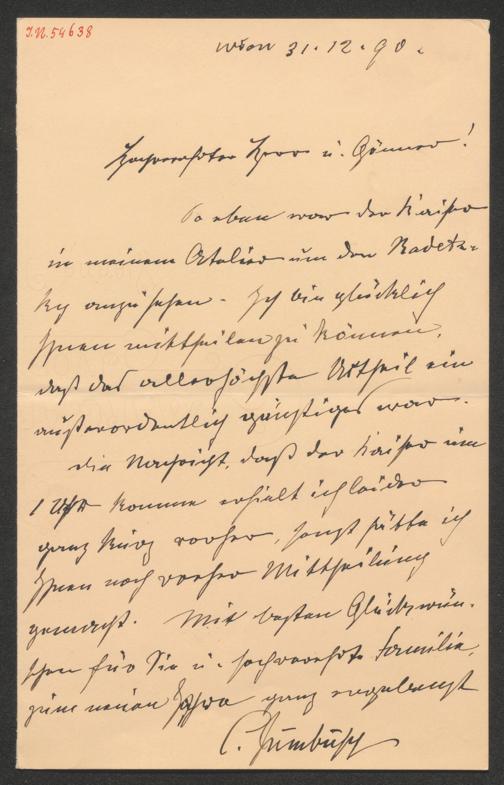 I.N. 54638
Wien 31.12.90.
Hochverehrter Herr u. Gönner!
So eben war der Kaiser
in meinem Atelier um den Radetz-
ky anzusehen. Ich bin glücklich
Ihnen mittheilen zu können,
daß das allerhöchste Urtheil ein
außerordentlich günstiges war.
Die Nachricht, daß der Kaiser um
1 Uhr komme erhielt ich leider
ganz kurz vorher, sonst hätte ich
Ihnen noch vorher Mittheilung
gemacht. Mit besten Glückwün-
schen für Sie u. hochverehrte Familie,
zum neuen Jahre ganz ergebenst
C. Zumbusch